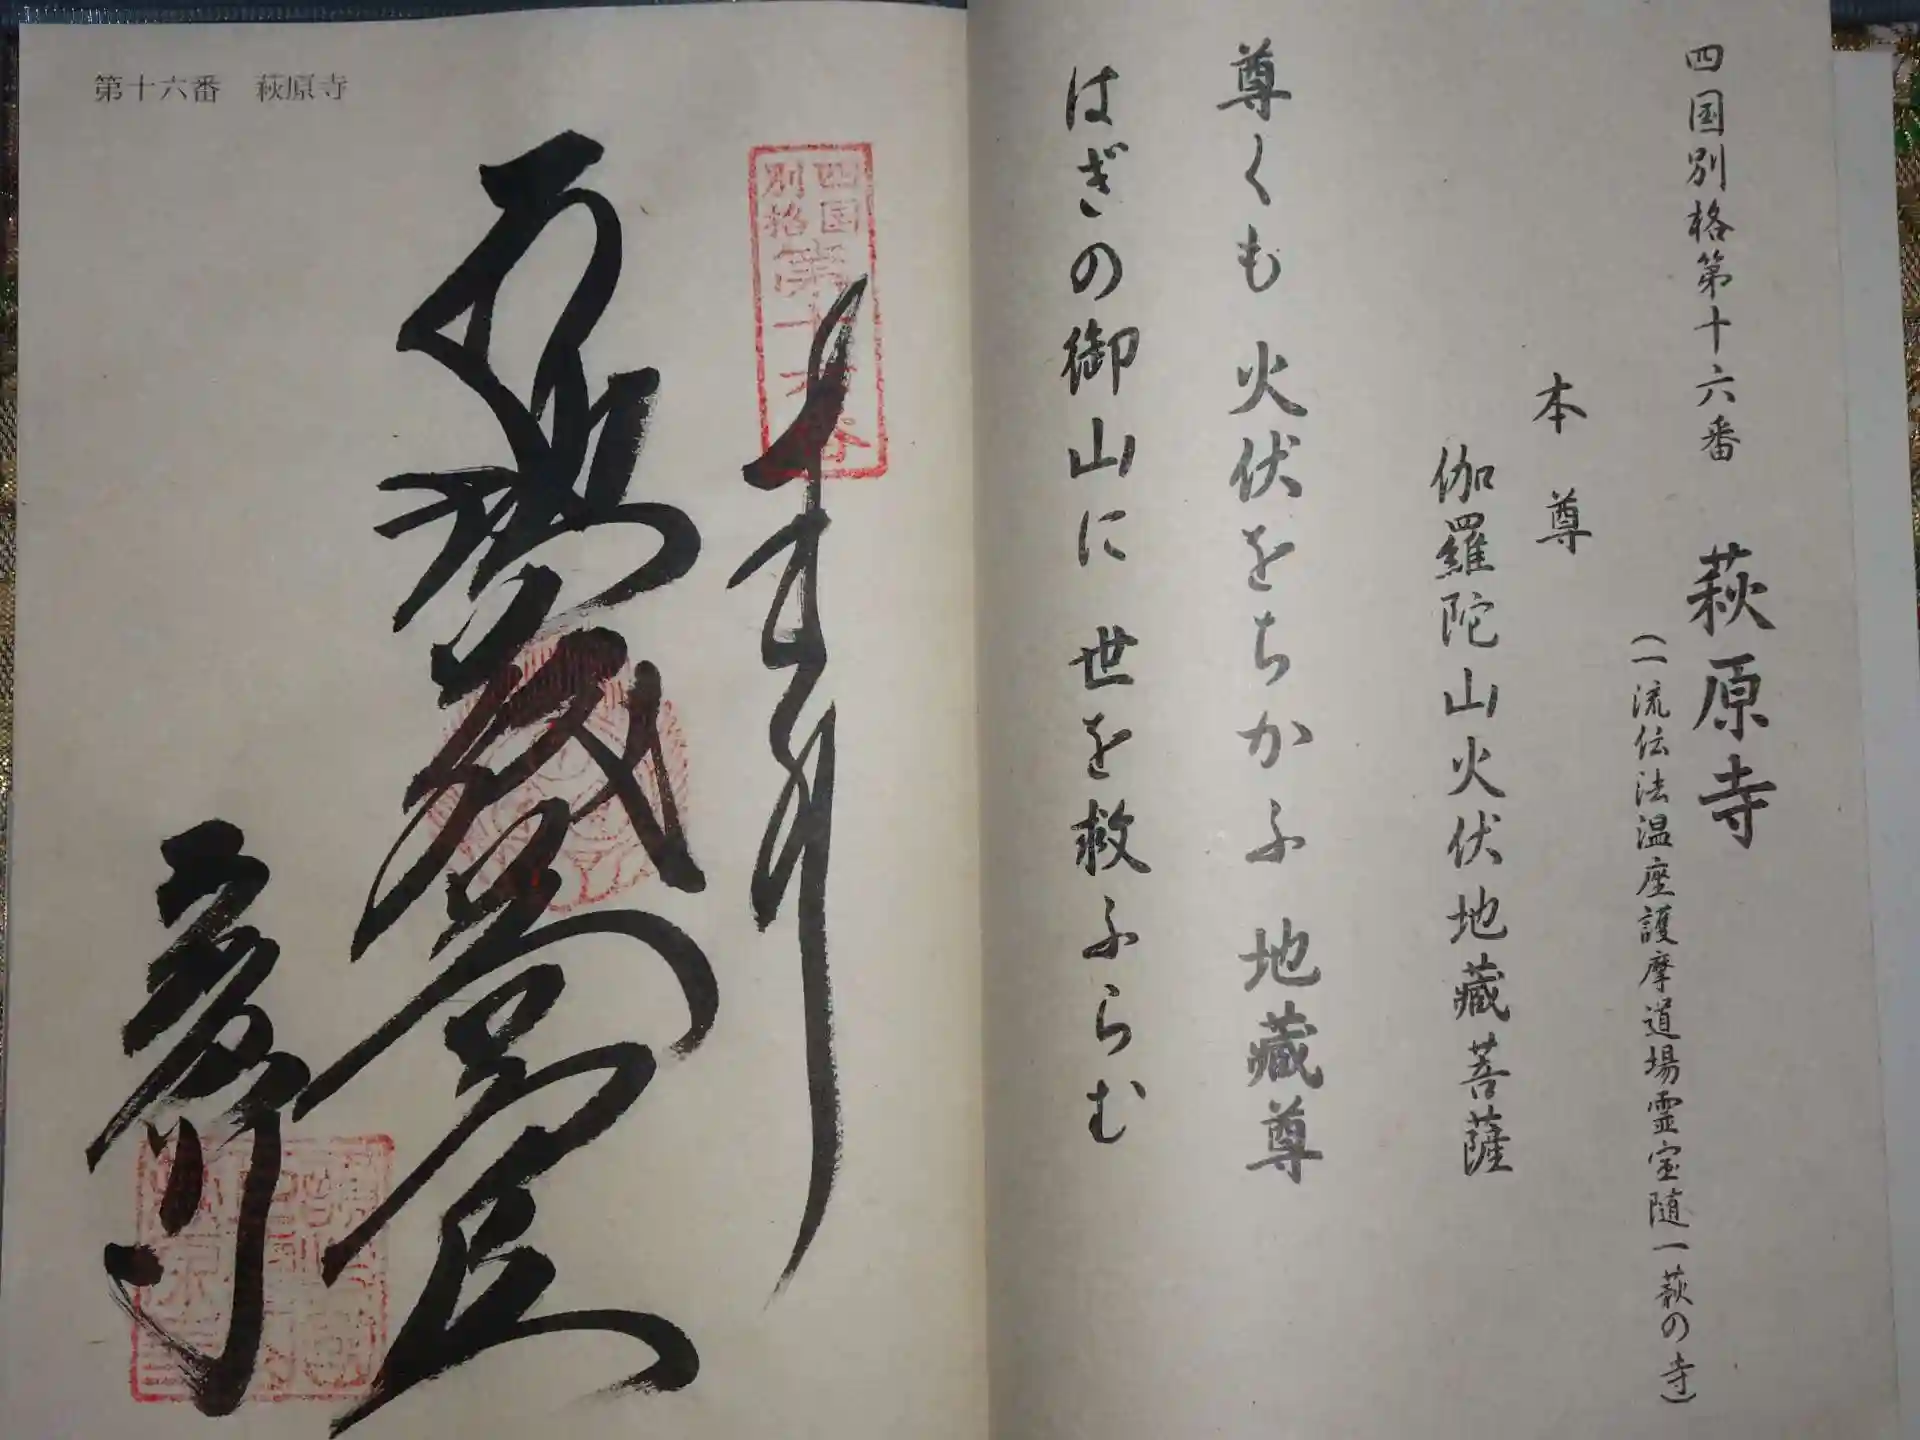 四国別格第十六番　萩原寺
(一流伝法温座護摩道場霊宝随一萩の寺)
本尊
伽羅陀山火伏地蔵菩薩
尊くも 火伏をちかふ 地蔵尊
はぎの御山に 世を救ふらむ
第十六番　萩原寺
四国
別格
第十六番
奉拝